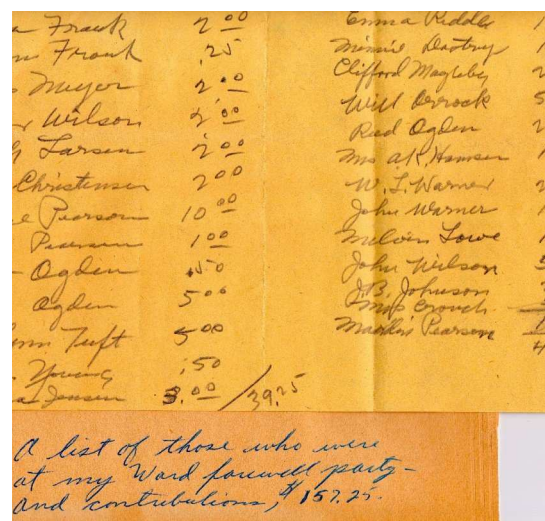 Frank 2.00
Frank .25
Meyer 2.00
Wilson 2.00
Larsen 2.00
Christensen 2.00
Pearson 10.00
Pearson 1.00
Ogden .50
Ogden 5.00
Tuft 5.00
Young .50
Jensen 3.00 / 39.25
Emma Riddle
Minnie
Clifford Magleby
Will Orrock
Reed Ogden
Mrs A.K. Hansen
W. L. Warner
John Warner
Melvin Lowe
John Wilson
J.B. Johnson
Crouch
Pearson
A list of those who were
at my Ward farewell party -
and contributions, $157.25.